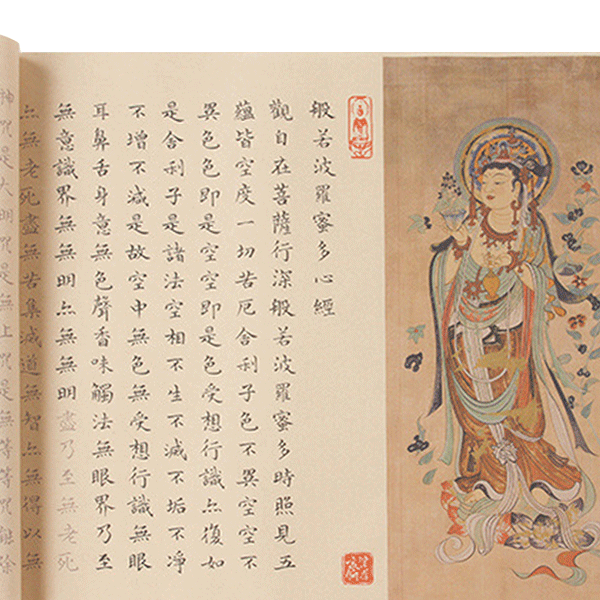 般若波羅蜜多心經
觀自在菩薩行深般若波羅蜜多時照見五
蘊皆空度一切苦厄舍利子色不異空空不
異色色即是空空即是色受想行識亦復如
是舍利子是諸法空相不生不滅不垢不淨
不增不減是故空中無色無受想行識無眼
耳鼻舌身意無色聲香味觸法無眼界乃至
無意識界無無明亦無無明盡乃至無老死
亦無老死盡無苦集滅道無智亦無得以無
神咒是大明咒是無上咒是無等等咒能除